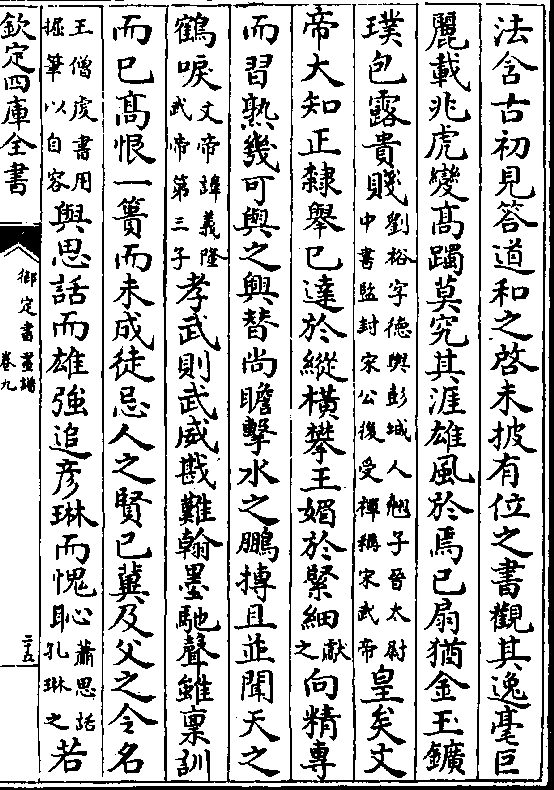 法含古初見答道和之啓未披有位之書觀其逸毫巨
麗載兆虎變髙躅莫究其涯雄風於焉已扇猶金玉鑛
璞包露貴賤劉裕字德輿彭城人翹子晉太尉中書監封宋公後受禪稱宋武帝皇矣文
帝大知正隸舉已達於縱横攀王媚於緊細獻之向精專
而習熟幾可與之興替尚瞻擊水之鵬摶且並聞天之
鶴唳文帝諱義隆武帝第三子孝武則武威戡難翰墨馳聲雖稟訓
而已髙恨一簣而未成徒忌人之賢已冀及父之令名
王僧虔書用掘筆以自容與思話而雄強追彦琳而愧恥蕭思話孔琳之若
欽定四庫全書
御定書畫譜
卷九
二五